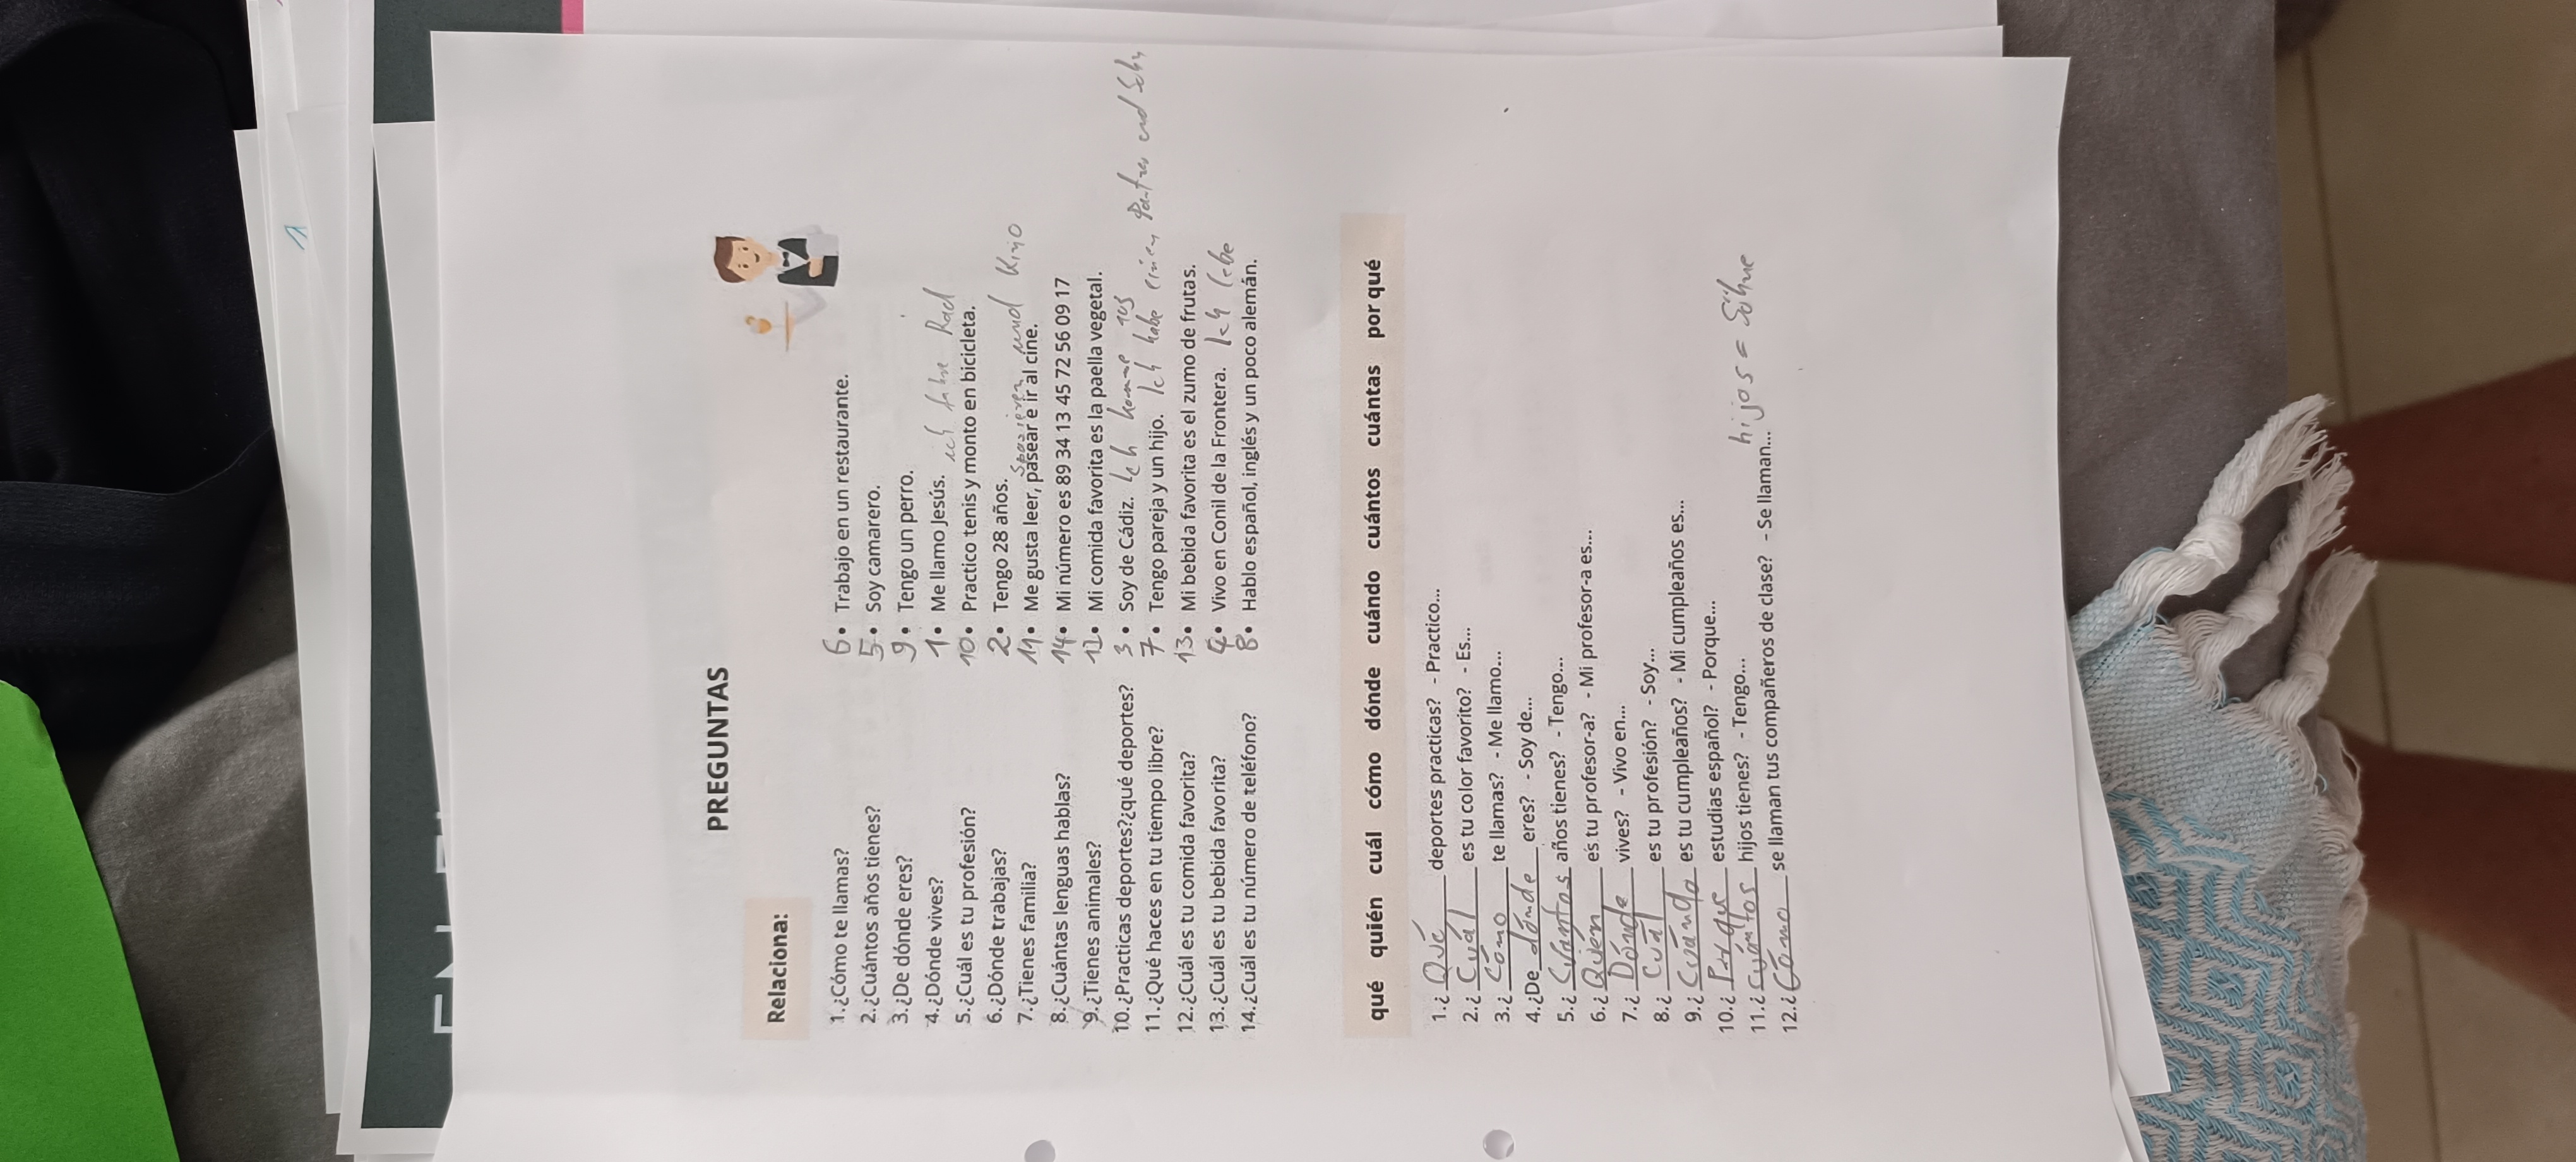 PREGUNTAS
Relaciona:
1.¿Cómo te llamas?
2.¿Cuántos años tienes?
3.¿De dónde eres?
4.¿Dónde vives?
5.¿Cuál es tu profesión?
6.¿Dónde trabajas?
7.¿Tienes familia?
8.¿Cuántas lenguas hablas?
9.¿Tienes animales?
10.¿Practicas deportes?¿qué deportes?
11.¿Qué haces en tu tiempo libre?
12.¿Cuál es tu comida favorita?
13.¿Cuál es tu bebida favorita?
14.¿Cuál es tu número de teléfono?
6 • Trabajo en un restaurante.
5 • Soy camarero.
9 • Tengo un perro.
1 • Me llamo Jesús. ich fahre Rad
10 • Practico tenis y monto en bicicleta.
2 • Tengo 28 años.
spazieren und Kino
11 • Me gusta leer, pasear e ir al cine.
14 • Mi número es 89 34 13 45 72 56 09 17
12 • Mi comida favorita es la paella vegetal.
3 • Soy de Cádiz. Ich komme aus
7 • Tengo pareja y un hijo. Ich habe einen Partner und Sohn
13 • Mi bebida favorita es el zumo de frutas.
4 • Vivo en Conil de la Frontera. Ich lebe
8 • Hablo español, inglés y un poco alemán.
qué quién cuál cómo dónde cuándo cuántos cuántas por qué
1.¿ Qué deportes practicas? - Practico...
2.¿ Cuál es tu color favorito? - Es...
3.¿ Cómo te llamas? - Me llamo...
4.¿De dónde eres? - Soy de...
5.¿ Cuántos años tienes? - Tengo...
6.¿ Quién es tu profesor-a? - Mi profesor-a es...
7.¿ Dónde vives? - Vivo en...
8.¿ Cuál es tu profesión? - Soy...
9.¿ Cuándo es tu cumpleaños? - Mi cumpleaños es...
10.¿ Por qué estudias español? - Porque...
11.¿ Cuántos hijos tienes? - Tengo...
hijos = Söhne
12.¿ Cómo se llaman tus compañeros de clase? - Se llaman...
1